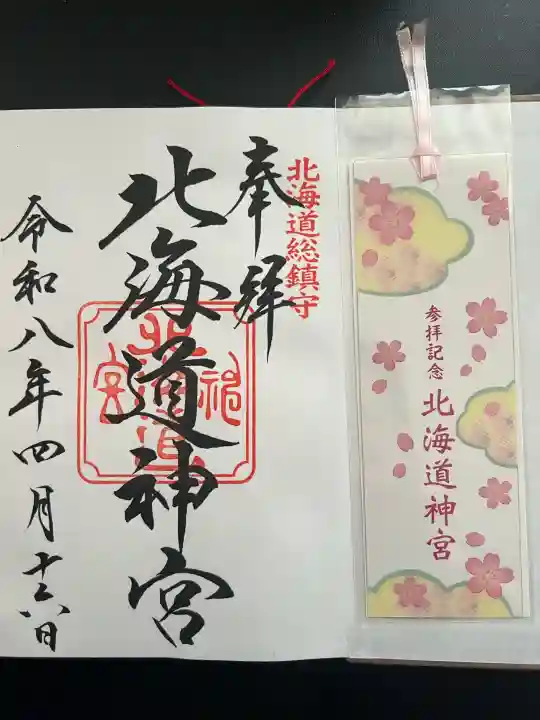 北海道総鎮守
奉拝
北海道神宮
令和八年四月十六日
北海道神宮
参拝記念
北海道神宮